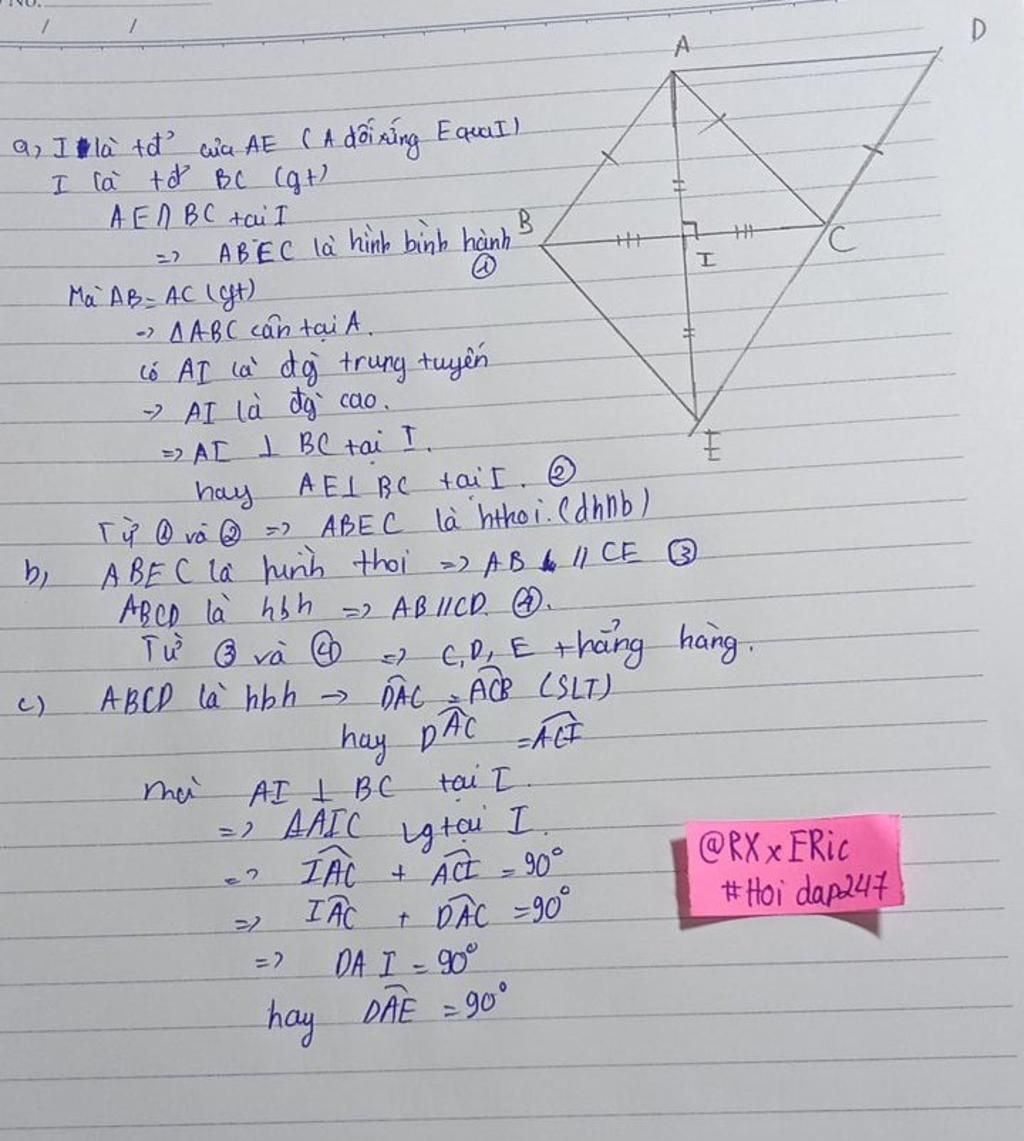 No.
/ /
a, I là tđ' của AE (A đối xứng E qua I)
I là tđ' BC (gt)
AE ∩ BC tại I
=> ABEC là hình bình hành ①
Mà AB = AC (gt)
-> ΔABC cân tại A.
có AI là đg̀ trung tuyến
-> AI là đg̀ cao.
=> AI ⊥ BC tại I.
hay AE ⊥ BC tại I. ②
Từ ① và ② => ABEC là hthoi. (dhnb)
b, ABEC là hình thoi => AB // CE ③
ABCD là hbh => AB // CD. ④.
Từ ③ và ④ => C, D, E thẳng hàng.
c) ABCD là hbh -> DÂC = AĈB (SLT)
hay DÂC = AĈI
mà AI ⊥ BC tại I.
=> ΔAIC vg tại I.
=> IÂC + AĈI = 90°
=> IÂC + DÂC = 90°
=> DA I = 90°
hay DÂE = 90°
A
D
B
C
I
E
@RX x ERic
#Hoi dap247